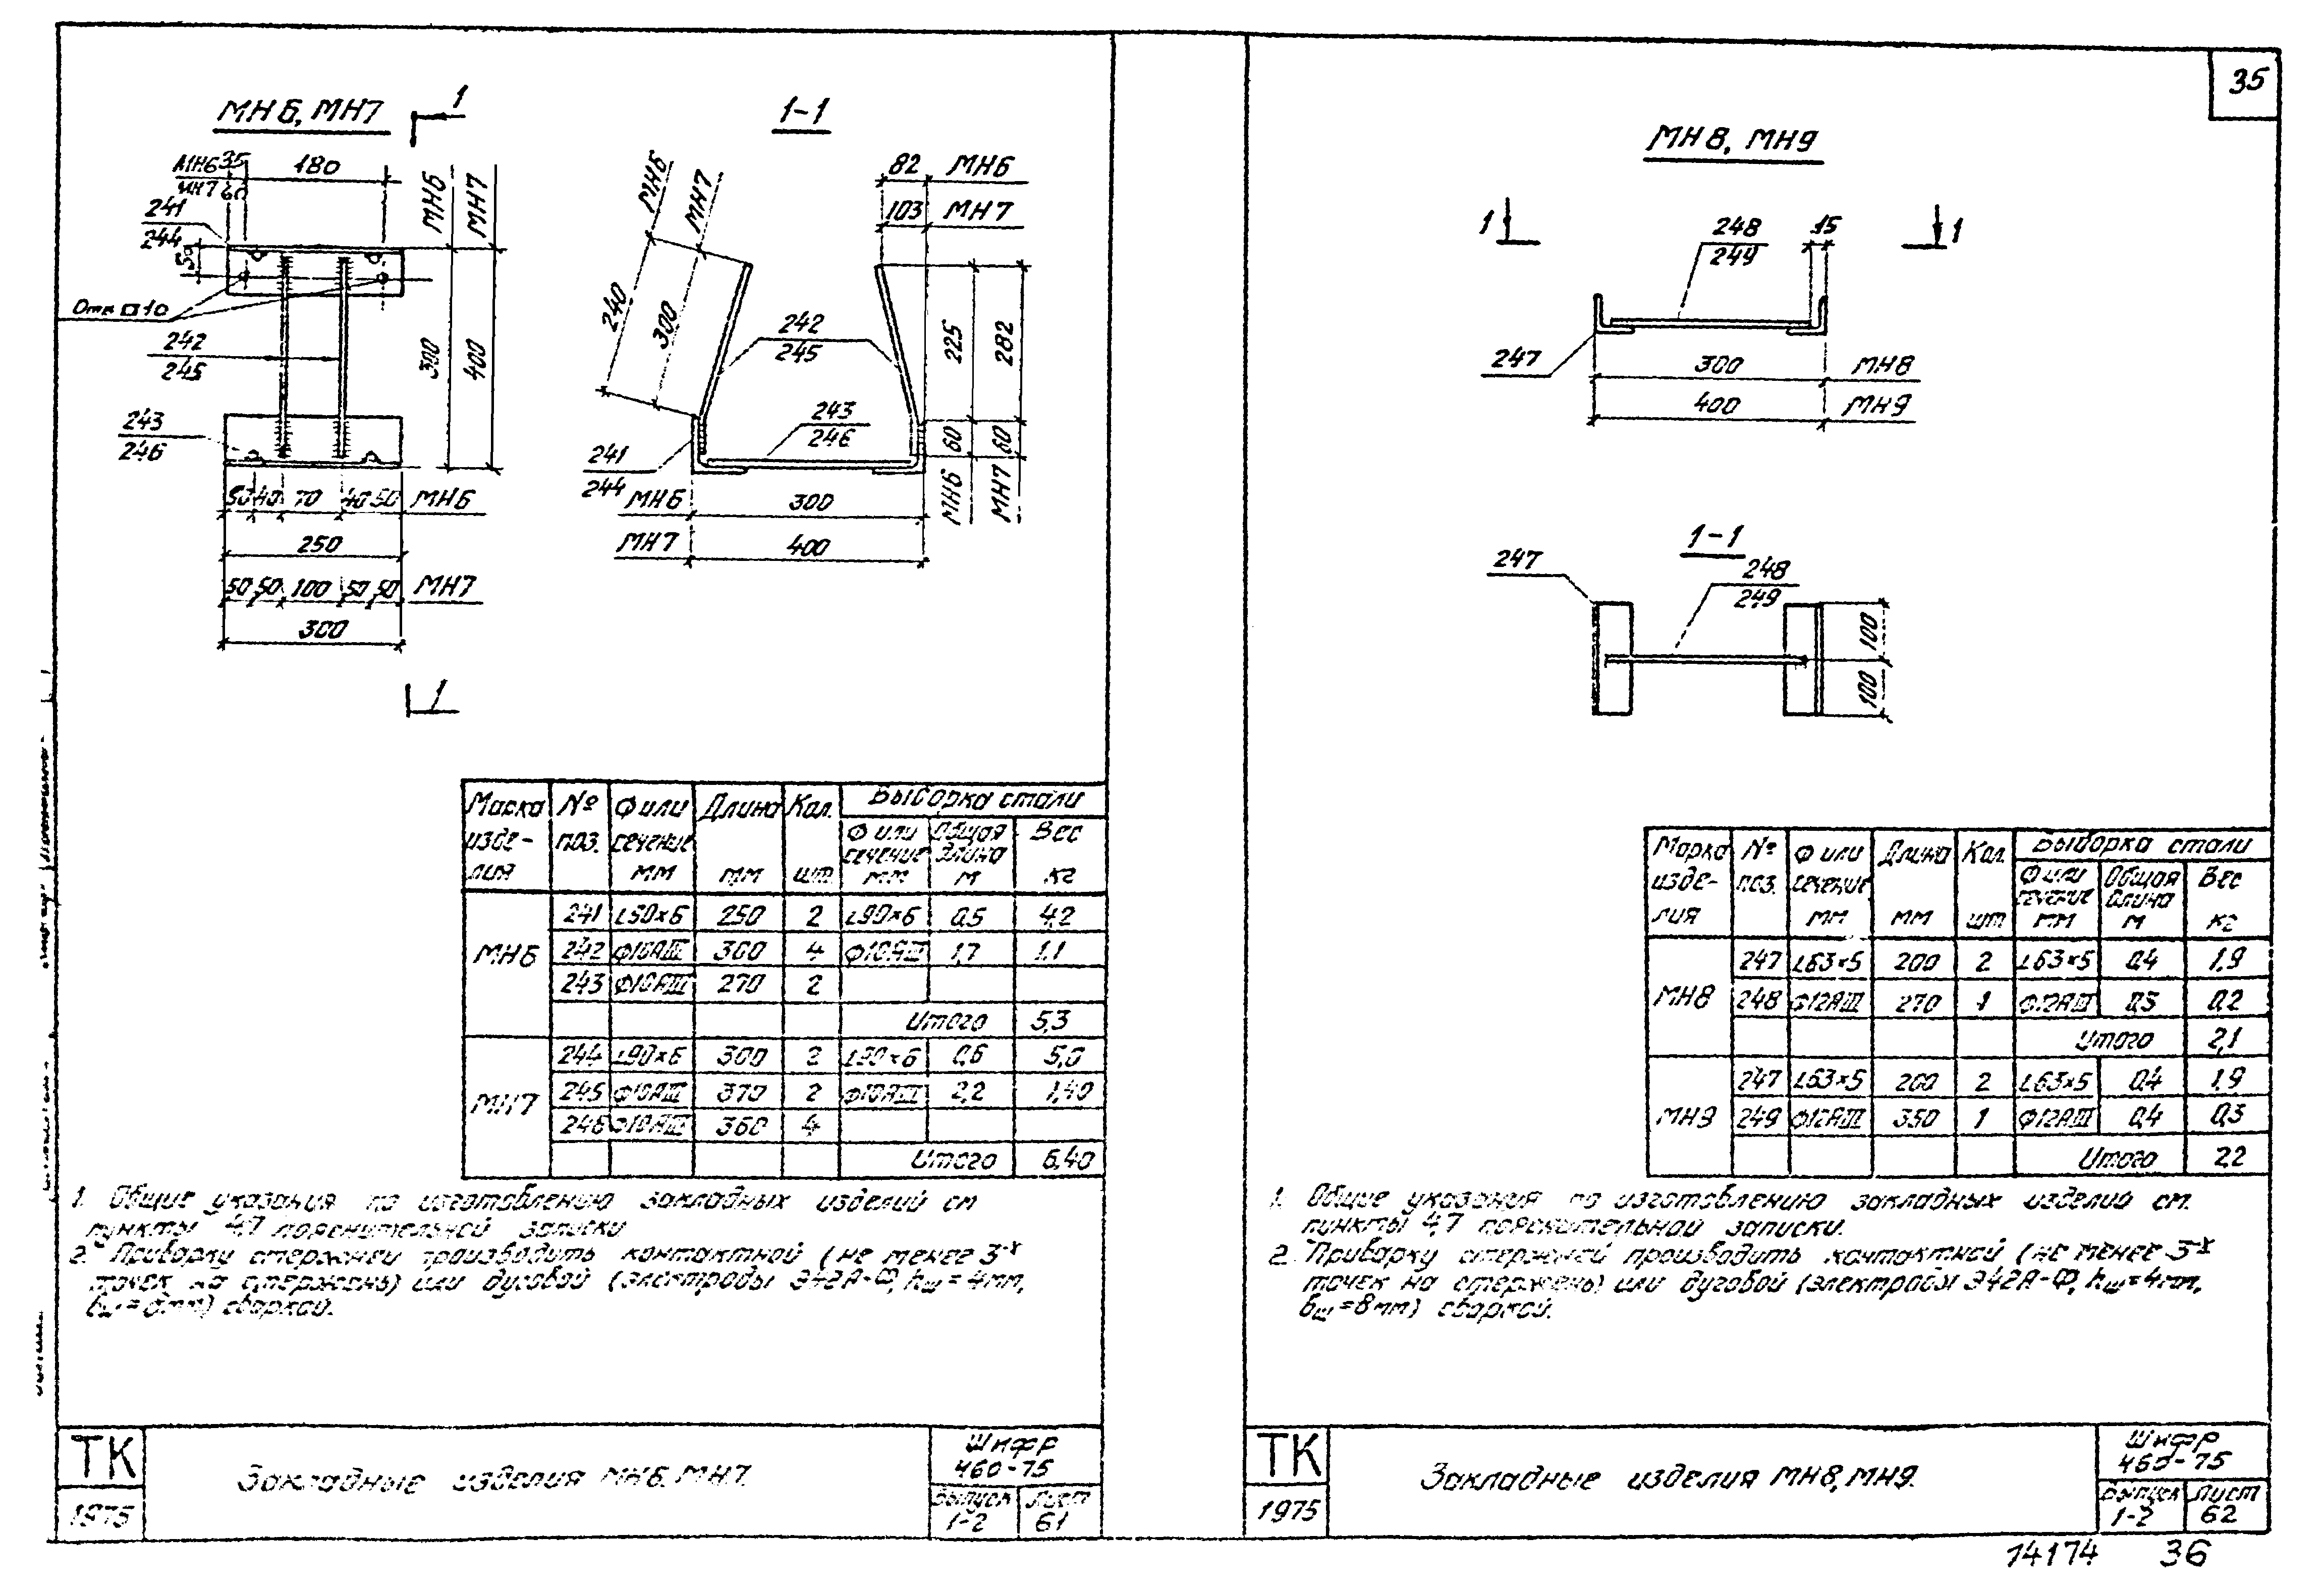 МН6, МН7
1
МН6 35
180
МН7 60
241
244
50
Отв □10
242
245
243
246
МН6
МН7
300
400
50 40 70 40 50 МН6
250
50 50 100 50 50 МН7
300
1
1-1
МН6
МН7
82 МН6
103 МН7
240
300
242
245
225
282
243
246
60
60
241
244
МН6 300
МН6
МН7
МН7 400
Марка изде-лия
№ поз.
Ф или сечение мм
Длина мм
Кол. шт
Выборка стали
Ф или сечение мм
Общая длина м
Вес кг
МН6
241 L90×6 250 2 L90×6 0,5 4,2
242 Ф10АIII 300 4 Ф10АIII 1,7 1,1
243 Ф10АIII 270 2
Итого 5,3
МН7
244 L90×6 300 2 L90×6 0,6 5,0
245 Ф10АIII 370 2 Ф10АIII 2,2 1,40
246 Ф10АIII 360 4
Итого 6,40
1. Общие указания по изготовлению закладных изделий см
пункты 4,7 пояснительной записки
2. Приварку стержней производить контактной (не менее 3-х
точек на стержень) или дуговой (электроды Э42А-Ф, hш=4мм,
bш=8мм) сваркой.
ТК
1975
Закладные изделия МН6. МН7.
Шифр
460-75
Выпуск
1-2
Лист
61
35
МН8, МН9
1
1
248
249
15
247
300 МН8
400 МН9
1-1
247
248
249
100
100
Марка изде-лия
№ поз.
Ф или сечение мм
Длина мм
Кол. шт
Выборка стали
Ф или сечение мм
Общая длина м
Вес кг
МН8
247 L63×5 200 2 L63×5 0,4 1,9
248 Ф12АIII 270 1 Ф12АIII 0,3 0,2
Итого 2,1
МН9
247 L63×5 200 2 L63×5 0,4 1,9
249 Ф12АIII 350 1 Ф12АIII 0,4 0,3
Итого 2,2
1. Общие указания по изготовлению закладных изделий см.
пункты 4,7 пояснительной записки.
2. Приварку стержней производить контактной (не менее 3-х
точек на стержень) или дуговой (электроды Э42А-Ф, hш=4мм,
bш=8мм) сваркой.
ТК
1975
Закладные изделия МН8, МН9.
Шифр
460-75
Выпуск
1-2
Лист
62
14174 36